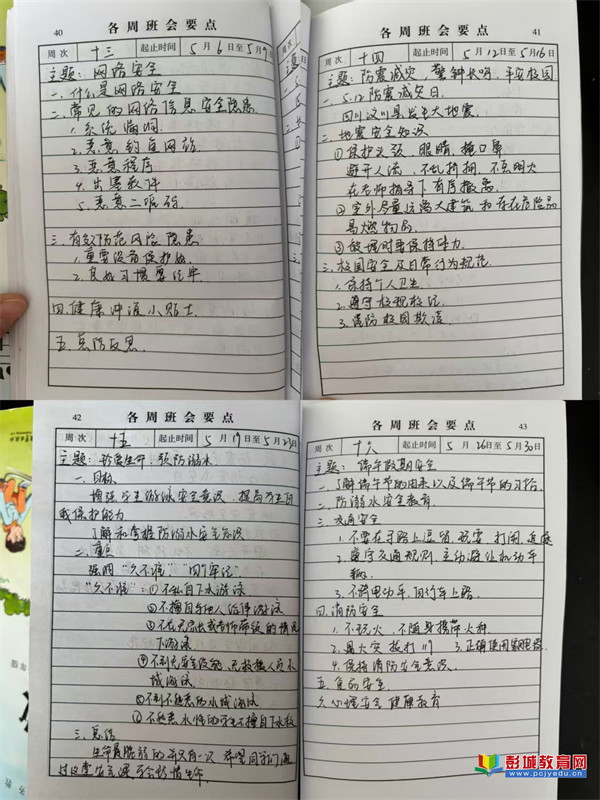 40
各周班会要点
周次 十三 起止时间 5月6日至5月9日
主题：网络安全
一、什么是网络安全
二、常见的网络信息安全隐患
1. 系统漏洞
2. 恶意钓鱼网站
3. 恶意程序
4. 出害软件
5. 恶意二维码
三、有效防范网络隐患
1. 重要设备保护好
2. 良好习惯要
四、健康冲浪小贴士
五、总结反思
各周班会要点
41
周次 十四 起止时间 5月12日至5月16日
主题：防震减灾，警钟长鸣，平安校园
一、5.12防震减灾日
四川汶川县发生大地震
二、地震安全知识
①保护头颈、眼睛，掩口鼻
避开人流，不乱挤拥，不点明火
在老师指导下有序撤离
②室外尽量远离大建筑和存在危险品
易燃物品
③被埋时要保持体力
三、校园安全及日常行为规范
1. 保持个人卫生
2. 遵守校规校纪
3. 谨防校园欺凌
42
各周班会要点
周次 十五 起止时间 5月19日至5月23日
主题：珍爱生命，预防溺水
一、目标
增强学生游泳安全意识，提高学生自
我保护能力
了解和掌握防溺水安全知识
二、重点
强调"六不准""四个牢记"
"六不准"：①不私自下水游泳
②不擅自与他人结伴游泳
③不在无家长或教师带领的情况
下游泳
④不到无安全设施、无救援人员水
域游泳
⑤不到不熟悉的水域游泳
⑥不熟悉水性的学生不擅自下水救
三、总结
生命是脆弱的而只有一次，希望同学们通
过这堂
各周班会要点
43
周次 十六 起止时间 5月26日至5月30日
主题：端午假期安全
一、了解端午节的由来以及端午节的习俗
二、防溺水安全教育
三、交通安全
1. 不要在马路上逗留、玩耍、打闹、追逐
2. 遵守交通规则，主动避让机动车
辆
3. 不骑电动车、自行车上路
四、消防安全
1. 不玩火，不随身携带火种
2. 遇火灾拨打119 3. 正确使用家用电器
4. 保持消防安全意识
五、食品安全
六、心理安全 健康教育
彭城教育网
www.pcjyedu.cn